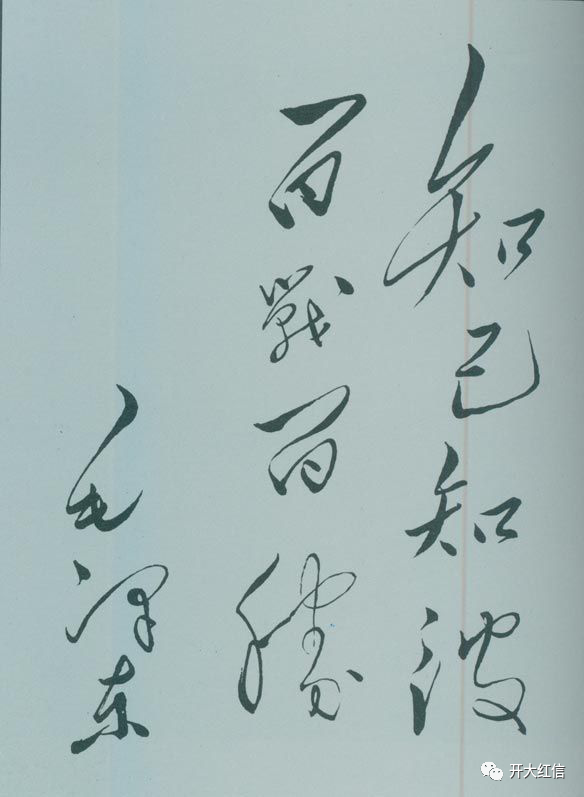 知己知彼
百戰百勝
毛泽东
开大红信